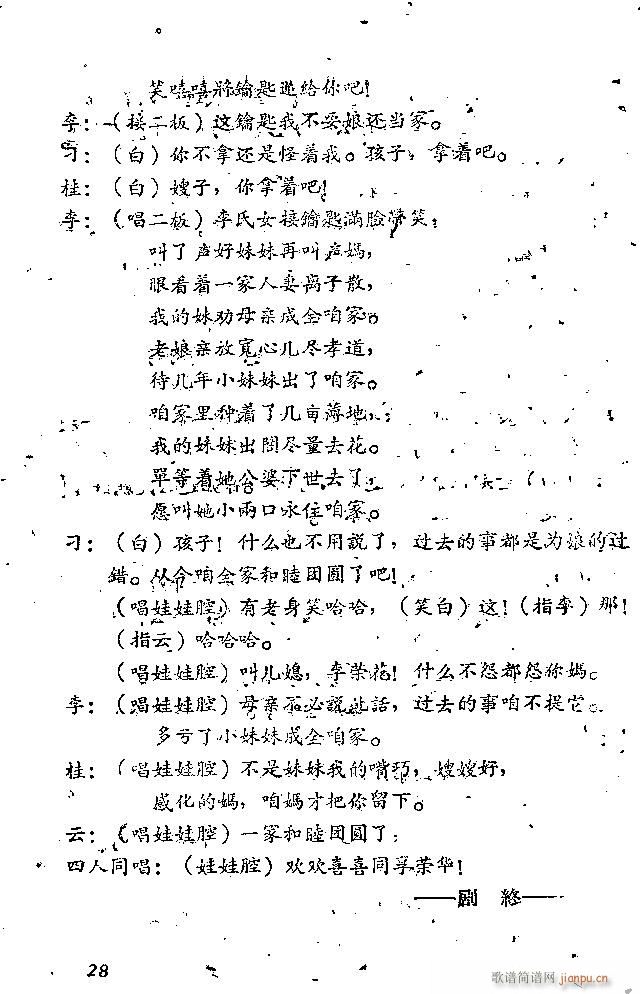 笑嘻嘻將鑰匙递給你吧!
李:(接二板)这鑰匙我不要娘还当家。
刁:(白)你不拿还是怪着我。孩子,拿着吧。
桂:(白)嫂子,你拿着吧!
李:(唱二板)李氏女接鑰匙滿臉带笑,
叫了声好妹妹再叫声媽,
眼看着一家人妻离子散,
我的妹劝母亲成全咱家。
老娘亲放寬心儿尽孝道,
待几年小妹妹出了咱家。
咱家里种着了几亩薄地,
我的妹妹出閣尽量去花。
單等着她公婆下世去了,
愿叫她小兩口永住咱家。
刁:(白)孩子!什么也不用説了,过去的事都是为娘的过
錯。从今咱全家和睦团圓了吧!
(唱娃娃腔)有老身笑哈哈,(笑白)这!(指李)那!
(指云)哈哈哈。
(唱娃娃腔)叫儿媳,李荣花!什么不怨都怨你媽。
李:(唱娃娃腔)母亲不必説此話,过去的事咱不提它。
多亏了小妹妹成全咱家。
桂:(唱娃娃腔)不是妹妹我的嘴巧,嫂嫂好,
感化的媽,咱媽才把你留下。
云:(唱娃娃腔)一家和睦团圓了,
四人同唱:(娃娃腔)欢欢喜喜同享荣华!
——剧 終——
28
歌谱简谱网 jianpu.cn